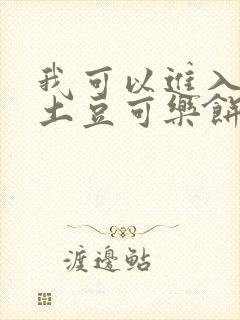 我可以進入
土豆可樂餅
渡邊鮎